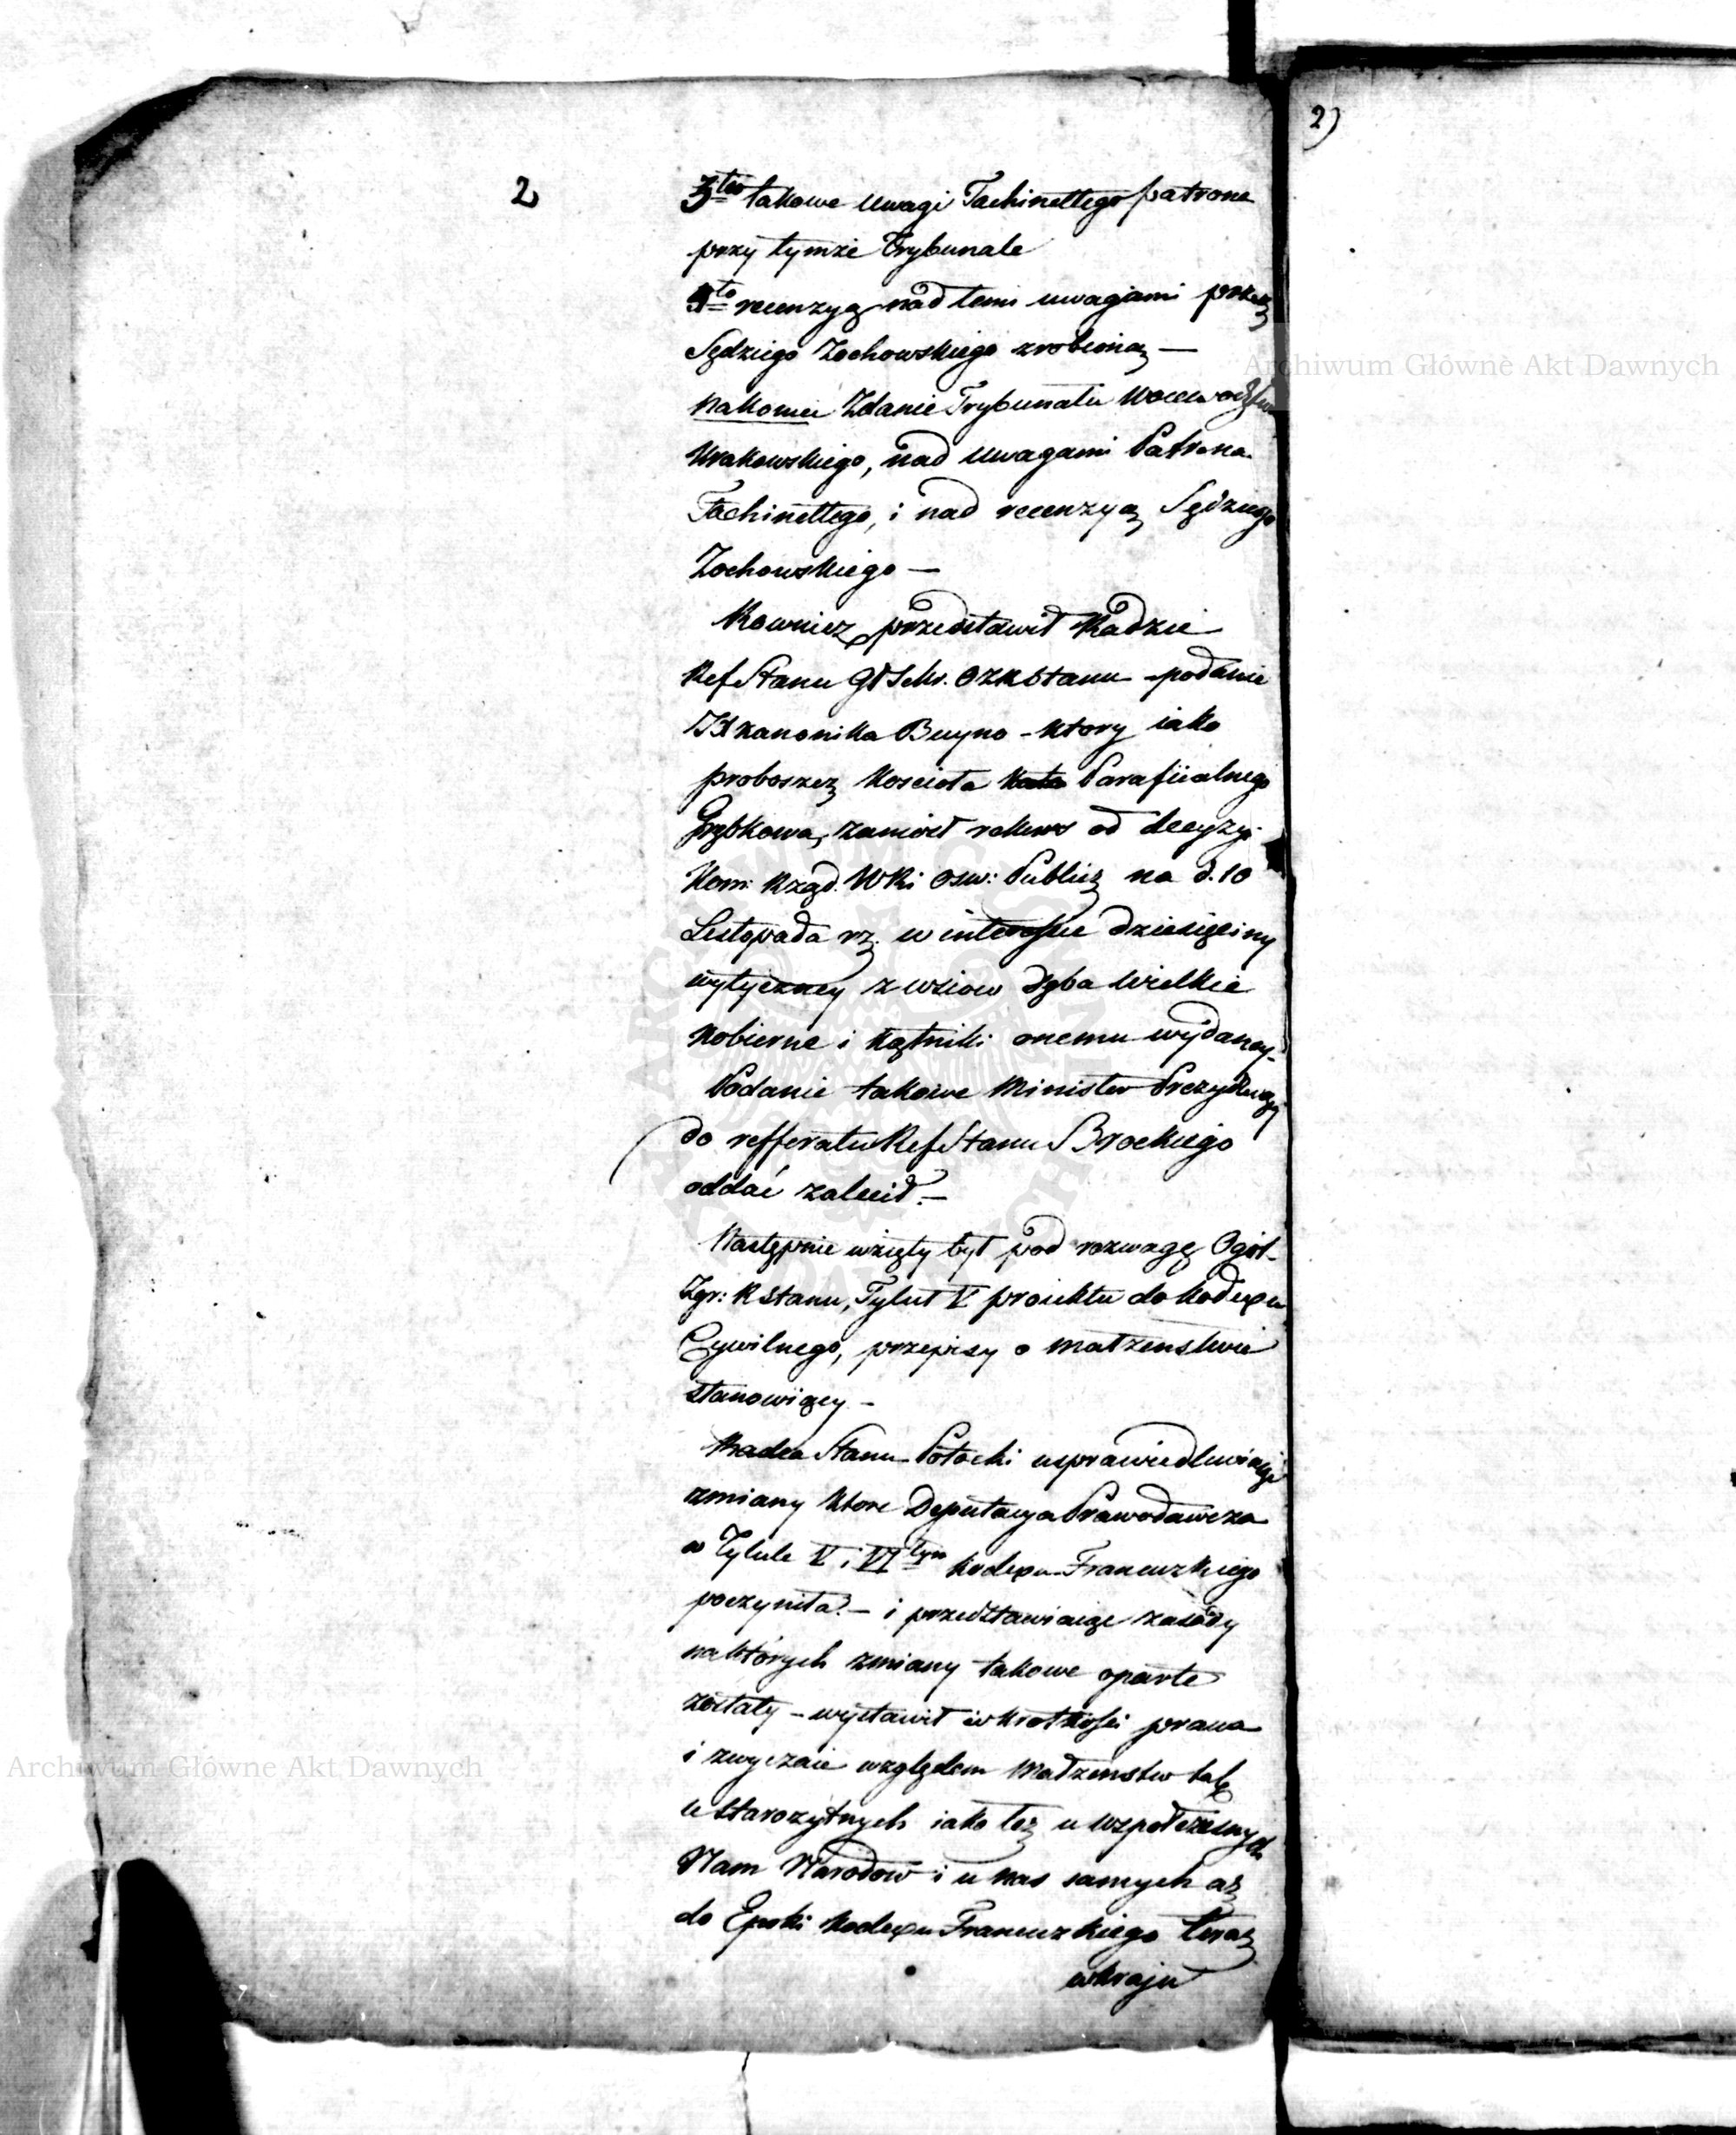 2
2)
3tio takowe uwagi Tachinettego patrona
przy tymże Trybunale
recenzyą nad temi uwagami przez
Sędziego Zochowskiego zrobioną —
Nakoniec Zdanie Trybunału Woiewodztwa
Krakowskiego, nad uwagami Patrona
Tachinettego, i nad recenzyą Sędziego
Zochowskiego —
Rowniez przedstawił Radzie
Ref Stanu podanie
kanonika Buyno - ktory iako
proboszcz Koscioła Parafiialnego
zaniosł rekurs od decyzyi
Kom: Rząd. Osw: Publicz na d. 10
Listopada rz. w interessie dziesięciny
wytyczney z wsiow Dęba wielkie
Kobierne i Kątniki onemu wydaney -
Podanie takowe Minister Prezyduiący
do refferatu Ref Stanu Brockiego
oddać zalecił. —
Następnie wzięty był pod rozwagę Ogol-
Zgr: R Stanu, Tytuł V proiektu do kodexu
Cywilnego, przepisy o małzenstwie
stanowiący -
Radca Stanu Potocki usprawiedliwiaiąc
zmiany ktore Deputacya Prawodawcza
w Tytule V i VItym kodexu Francuzkiego
poczyniła. — i przedstawiaiąc zasady
na których zmiany takowe oparte
zostały - wystawił w krotkości prawa
i zwyczaie względem Małzenstw tak
u starozytnych iako tez u wspołczesnych
Nam Narodow i u nas samych az
do Epoki Kodexu Francuzkiego teraz
w kraju
Archiwum Główne Akt Dawnych
Archiwum Główne Akt Dawnych